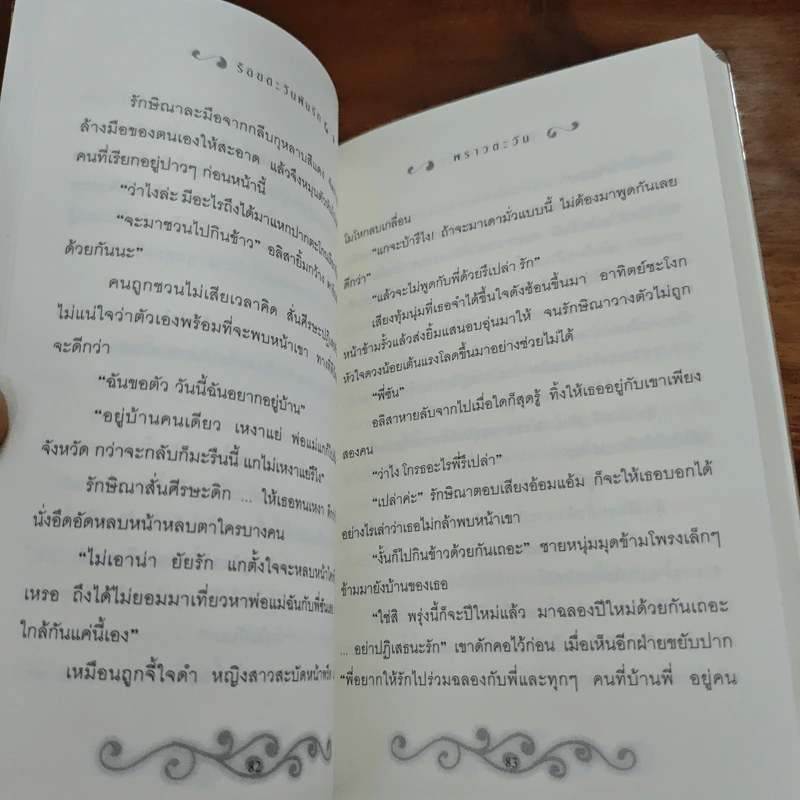 ร้อยตะวันพันรัก
รักษิณาละมือจากกลีบกุหลาบสีแดง
ล้างมือของตนเองให้สะอาด แล้วจึงหมุนตัว
คนที่เรียกอยู่ปาวๆ ก่อนหน้านี้
“ว่าไงล่ะ มีอะไรถึงได้มาแหกปากตะโกน
“จะมาชวนไปกินข้าว” อลิสายิ้มกว้าง
ด้วยกันนะ”
คนถูกชวนไม่เสียเวลาคิด สั่นศีรษะ
ไม่แน่ใจว่าตัวเองพร้อมที่จะพบหน้าเขา ทาง
จะดีกว่า
“ฉันขอตัว วันนี้ฉันอยากอยู่บ้าน”
“อยู่บ้านคนเดียว เหงาแย่ พ่อแม่แก
จังหวัด กว่าจะกลับก็มะรืนนี้ แกไม่เหงาแย่รึไง”
รักษิณาสั่นศีรษะดิก ... ให้เธอทนเหงา
นั่งอึดอัดหลบหน้าหลบตาใครบางคน
“ไม่เอาน่า ยัยรัก แกตั้งใจจะหลบหน้า
เหรอ ถึงได้ไม่ยอมมาเที่ยวหาพ่อแม่ฉันกับพี่ซัน
ใกล้กันแค่นี้เอง”
เหมือนถูกจี้ใจดำ หญิงสาวสะบัดหน้า
82
พราวตะวัน
โมโหกลบเกลื่อน
“แกจะบ้ารึไง! ถ้าจะมาเดามั่วแบบนี้ ไม่ต้องมาพูดกันเลย
ดีกว่า”
“แล้วจะไม่พูดกับพี่ด้วยรึเปล่า รัก”
เสียงทุ้มนุ่มที่เธอจำได้ขึ้นใจดังซ้อนขึ้นมา อาทิตย์ชะโงก
หน้าข้ามรั้วแล้วส่งยิ้มแสนอบอุ่นมาให้ จนรักษิณาวางตัวไม่ถูก
หัวใจดวงน้อยเต้นแรงโลดขึ้นมาอย่างช่วยไม่ได้
“พี่ซัน”
อลิสาหายลับจากไปเมื่อใดก็สุดรู้ ทิ้งให้เธออยู่กับเขาเพียง
สองคน
“ว่าไง โกรธอะไรพี่รึเปล่า”
“เปล่าค่ะ” รักษิณาตอบเสียงอ้อมแอ้ม ก็จะให้เธอบอกได้
อย่างไรเล่าว่าเธอไม่กล้าพบหน้าเขา
“งั้นก็ไปกินข้าวด้วยกันเถอะ” ชายหนุ่มมุดข้ามโพรงเล็กๆ
ข้ามมายังบ้านของเธอ
“ใช่สิ พรุ่งนี้ก็จะปีใหม่แล้ว มาฉลองปีใหม่ด้วยกันเถอะ
... อย่าปฏิเสธนะรัก” เขาดักคอไว้ก่อน เมื่อเห็นอีกฝ่ายขยับปาก
“พี่อยากให้รักไปร่วมฉลองกับพี่และทุกๆ คนที่บ้านพี่ อยู่คน
83